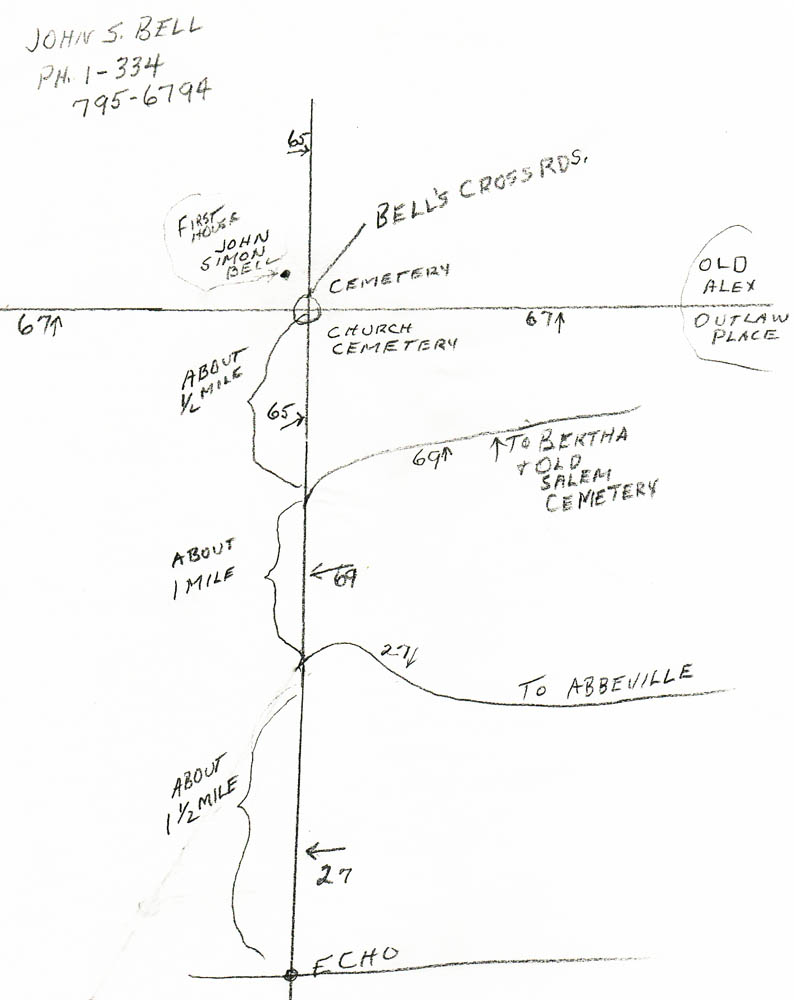 JOHN S. BELL
PH. 1-334
795-6794
65
BELL'S CROSS RDS.
FIRST
HOUSE
JOHN
SIMON
BELL
CEMETERY
OLD
ALEX
OUTLAW
PLACE
67↑
CHURCH
CEMETERY
67↑
ABOUT
1/2 MILE
65
69↑
↑TO BERTHA
+ OLD
SALEM
CEMETERY
ABOUT
1 MILE
69
27
TO ABBEVILLE
ABOUT
1 1/2 MILE
27
ECHO